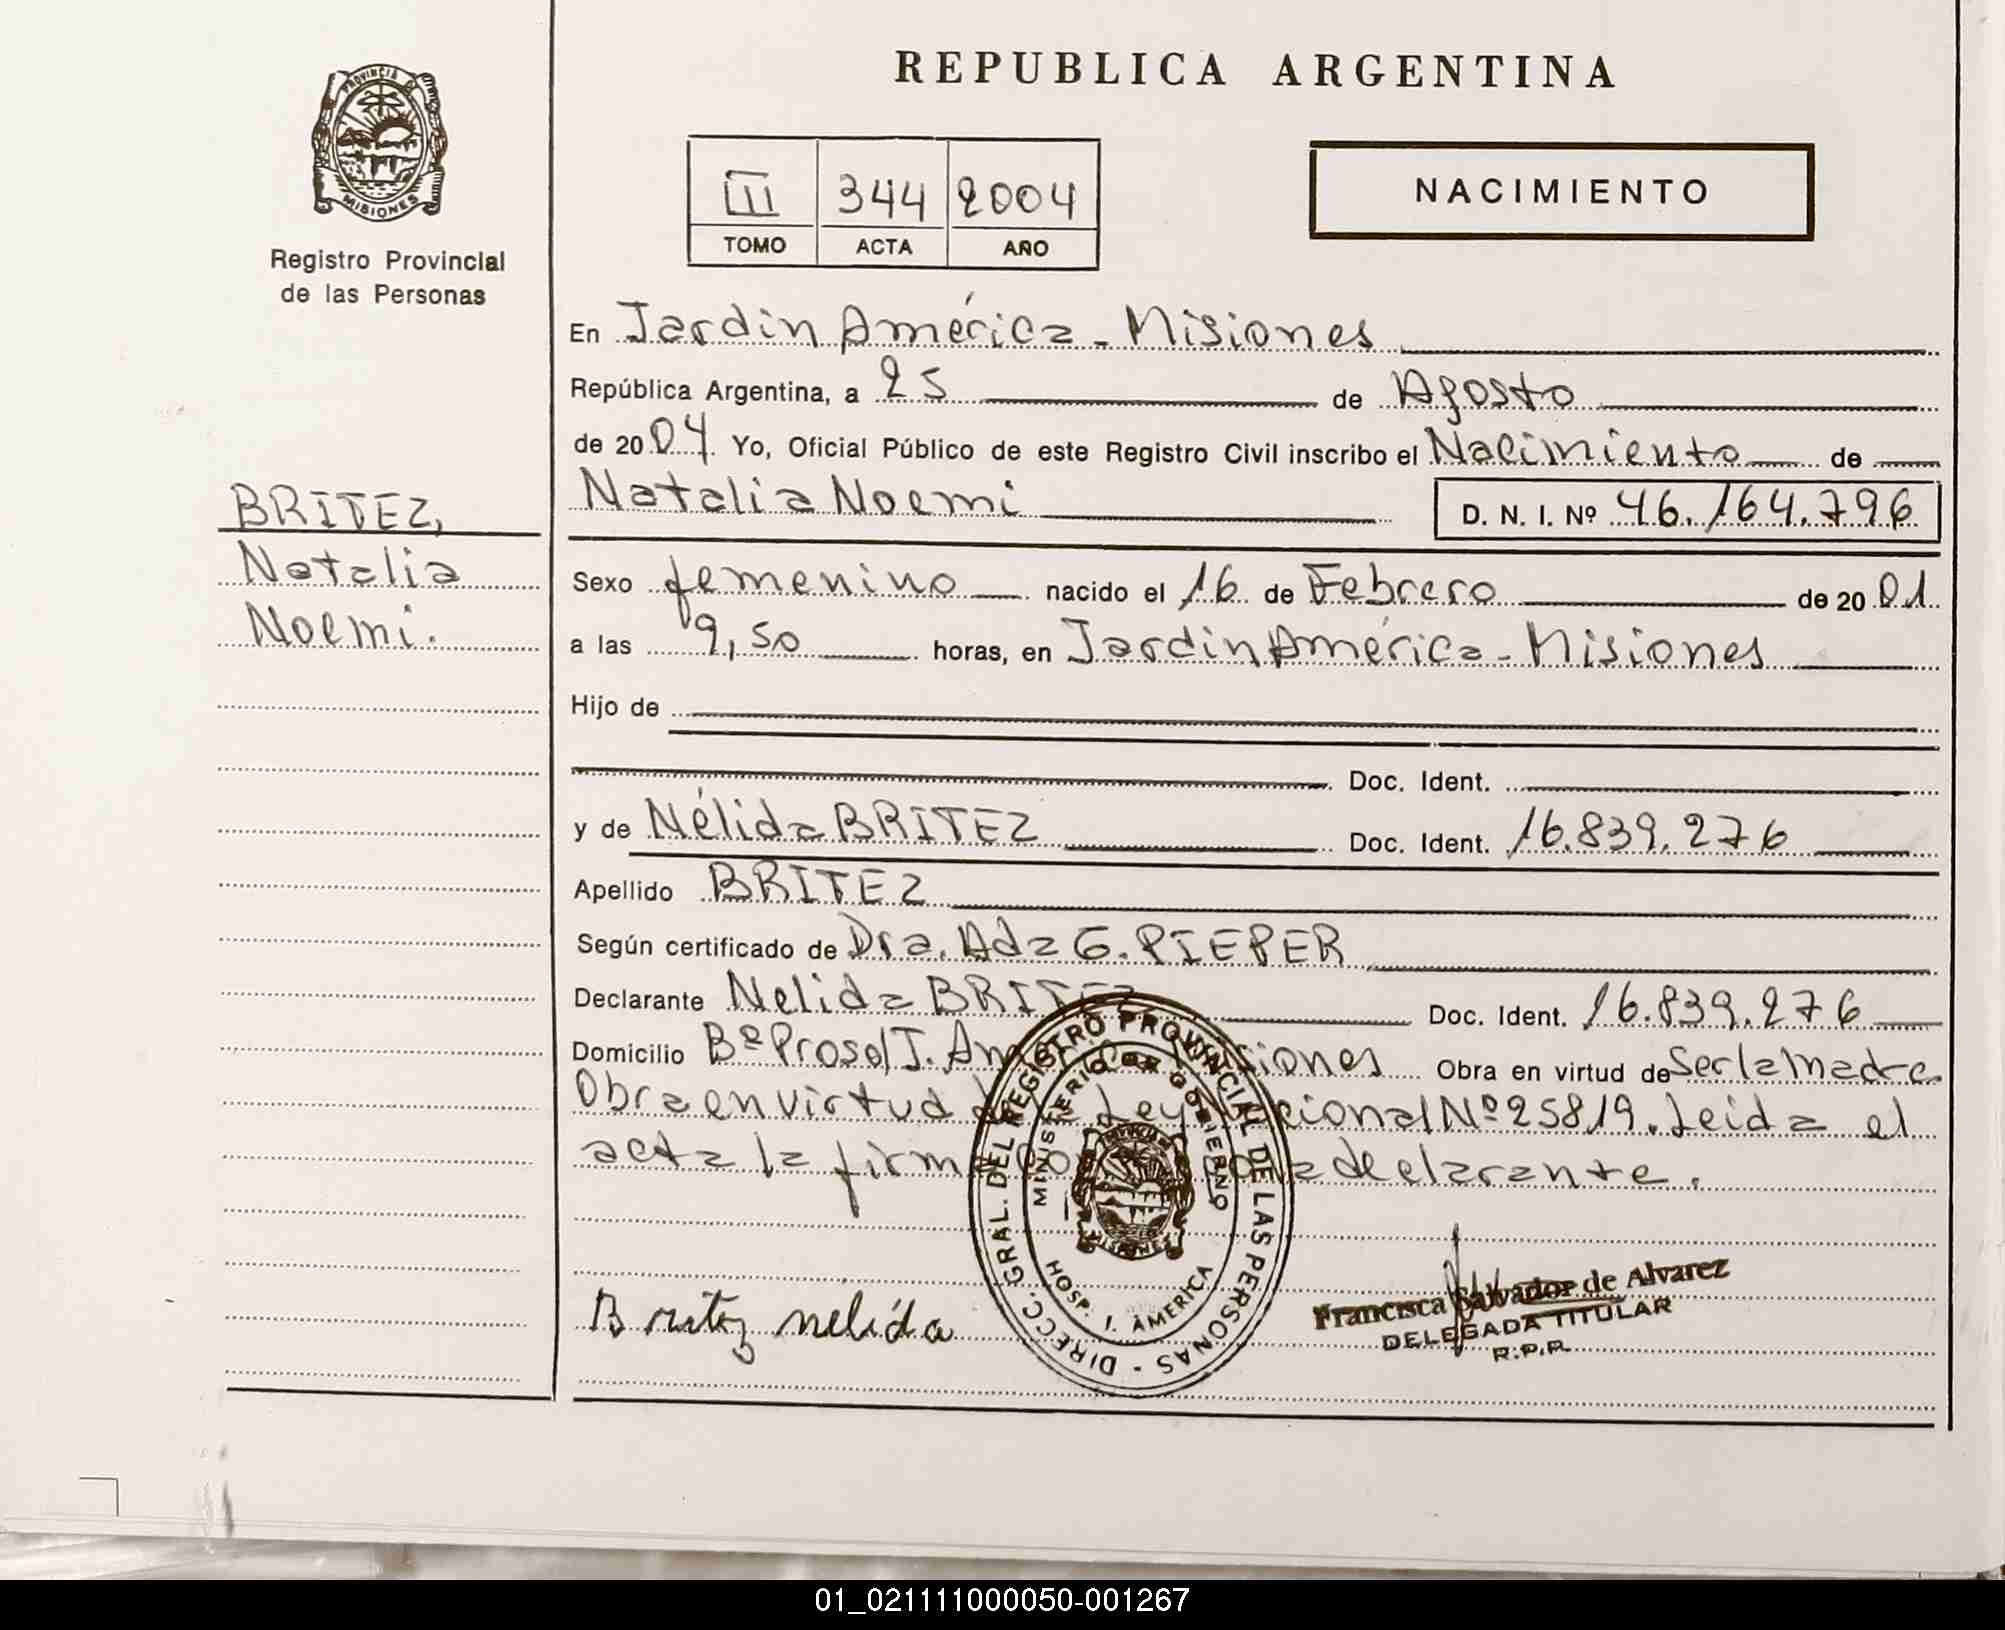 REPUBLICA ARGENTINA
PROVINCIA DE MISIONES
Registro Provincial
de las Personas
III 344 2004
TOMO ACTA AÑO
NACIMIENTO
BRITEZ,
Natalia
Noemi.
En Jardin América - Misiones
República Argentina, a 25 de Agosto
de 2004. Yo, Oficial Público de este Registro Civil inscribo el Nacimiento de
Natalia Noemi D. N. I. Nº 46.164.796
Sexo femenino nacido el 16 de Febrero de 2001
a las 9,50 horas, en Jardin América - Misiones
Hijo de
Doc. Ident.
y de Nélida BRITEZ Doc. Ident. 16.839.276
Apellido BRITEZ
Según certificado de Dra. Ada G. PIEPER
Declarante Nelida BRITEZ Doc. Ident. 16.839.276
Domicilio Bº Prosol J. Am iones Obra en virtud de Ser la madre
Obra en virtud Ley cional Nº 25819. Leida el
acta la firm declarante.
DIRECC. GRAL. DEL REGISTRO PROVINCIAL DE LAS PERSONAS -
MINISTERIO DE GOBIERNO
PROVINCIA DE MISIONES
HOSP. J. AMERICA
Britez nelida
Francisca Salvador de Alvarez
DELEGADA TITULAR
R.P.P.
01_021111000050-001267